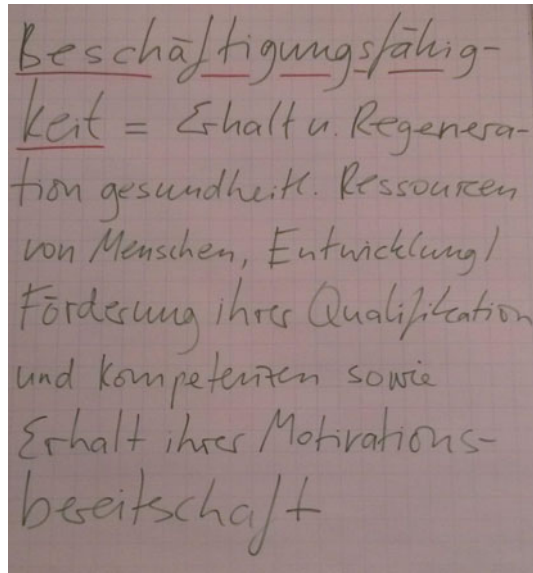 Beschäftigungsfähig-
keit = Erhalt u. Regenera-
tion gesundheitl. Ressourcen
von Menschen, Entwicklung/
Förderung ihrer Qualifikation
und Kompetenzen sowie
Erhalt ihrer Motivations-
bereitschaft